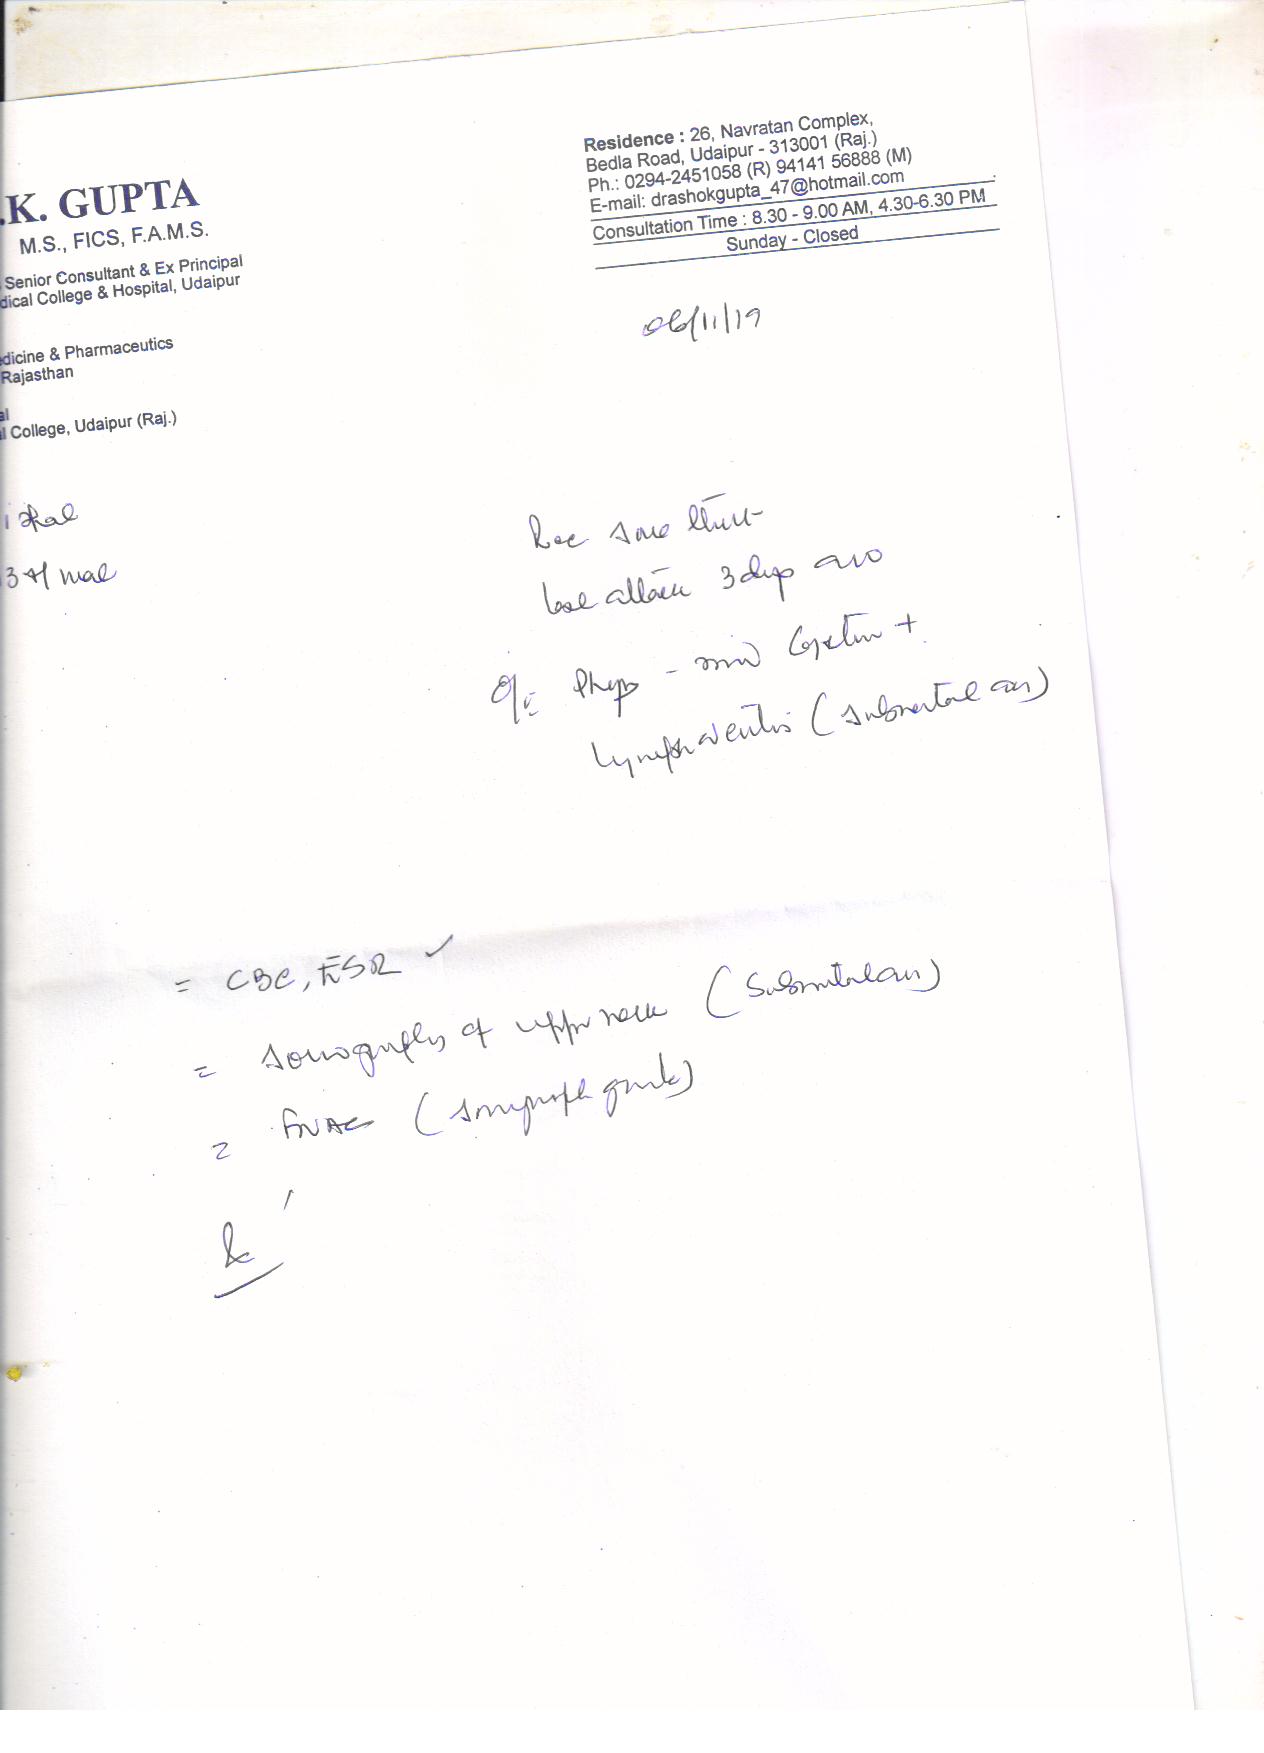 .K. GUPTA
M.S., FICS, F.A.M.S.
Senior Consultant & Ex Principal
dical College & Hospital, Udaipur
dicine & Pharmaceutics
Rajasthan
al
l College, Udaipur (Raj.)
Residence : 26, Navratan Complex,
Bedla Road, Udaipur - 313001 (Raj.)
Ph.: 0294-2451058 (R) 94141 56888 (M)
E-mail: drashokgupta_47@hotmail.com
Consultation Time : 8.30 - 9.00 AM, 4.30-6.30 PM
Sunday - Closed
06/11/19
Rec sore throat
last attack 3 days ago
O/E - mild +
Lymphadenitis (submental
= CBC, ESR ✓
= Sonography of upper neck (Submental
= FNAC (